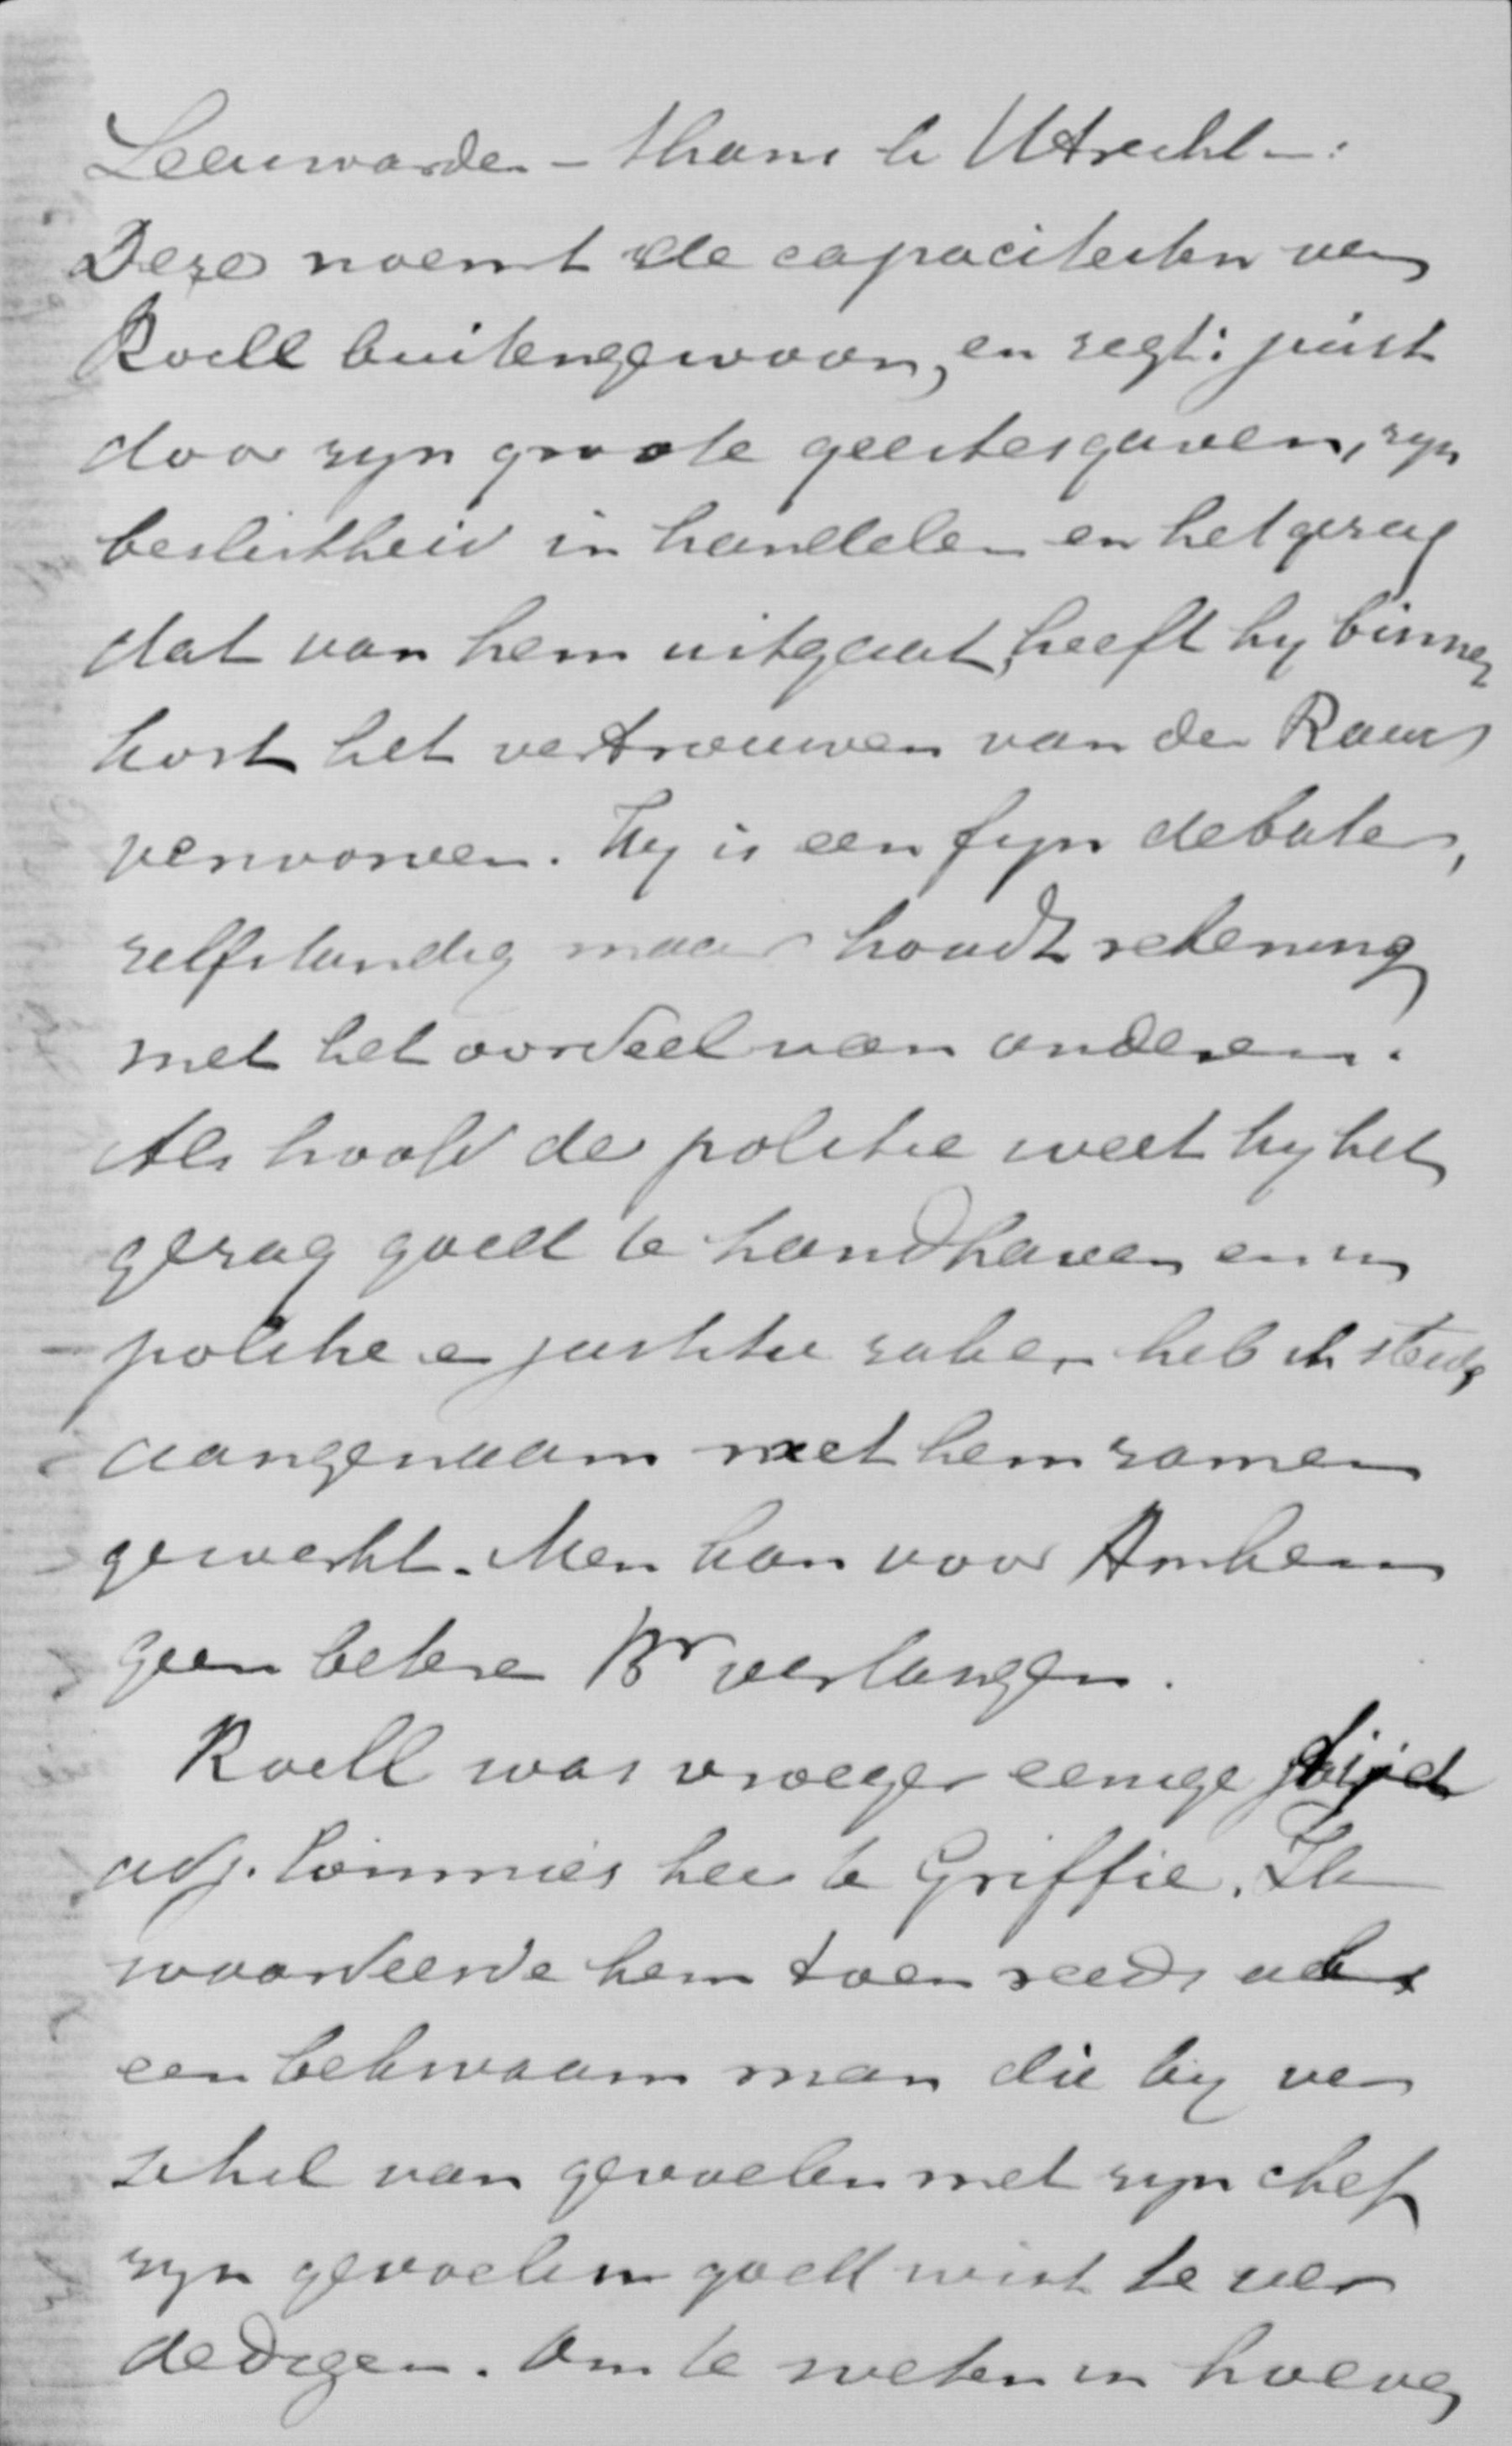 Leeuwarden – thans te Utrecht –:
Deze noemt de capaciteiten van
Roëll buitengewoon, en zegt: juist
door zyn groote geestesgaven, zyn
beslistheid in handelen en het gezag
dat van hem uitgaat, heeft hy binnen
kort het vertrouwen van den Raad
verworven. Hy is een fyn debater,
zelfstandig maar houdt rekening
met het oordeel van anderen.
Als hoofd der politie weet hy het
gezag goed te handhaven en in
politie en justitie zaken heb ik steeds
aangenaam met hem samen
gewerkt. Men kan voor Arnhem
geen betere Br verlangen.
Roëll was vroeger eenige tijd
adj. Commies hier te Griffie. Ik
waardeerde hem toen reeds als
een bekwaam man die by ver
schil van gevoelen met zyn chef
zyn gevoelen goed wist te ver
dedigen. Om te weten in hoever